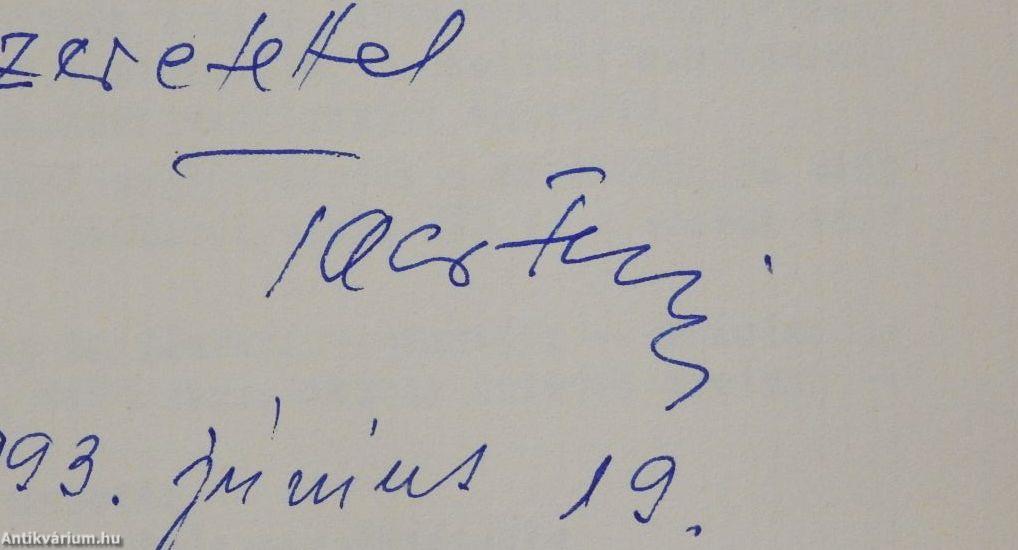 zeretettel
93. június 19.
Antikvárium.hu